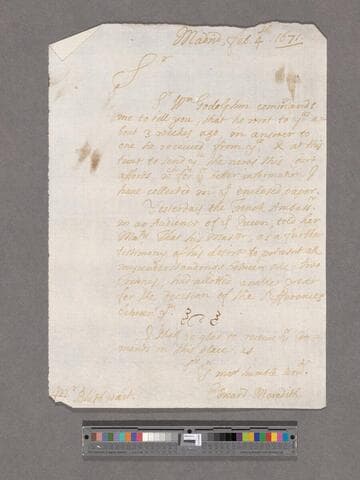 Madrid, Feb. 4th 1671.
Sr
Sr Wm Godolphin commands
me to tell you, that he writ to you a-
bout 3 weekes ago, in answer to
one he received from you & at this
time to send you the news this Court
affords, wch for yr better information I
have collected in ye enclosed paper.
Yesterday the French Ambassr
in an Audience of ye Queen, told her
Maty that his Master, as a further
testimony of his desire to prevent all
between the two
Crownes, had allotted another yeare
for the decision of the Differences
between ym
I shall be glad to receive yr com-
mands in this place, as
Sr
Yr most humble servt
Edward Meredith